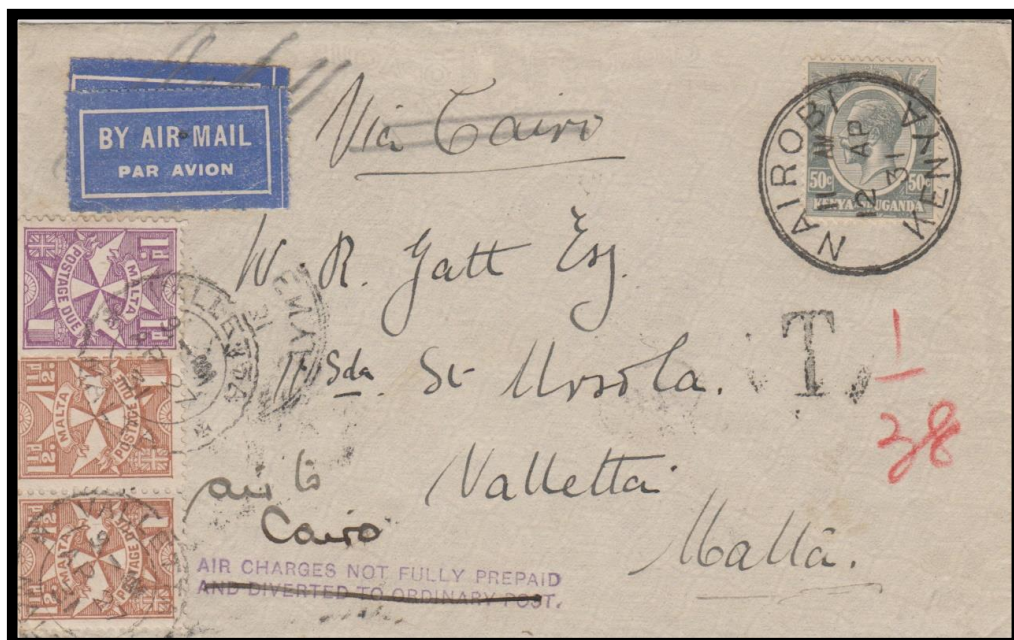 BY AIR MAIL
PAR AVION
Via Cairo
NAIROBI
11 AM
12 AP
31
KENYA
50c 50c
KENYA UGANDA
W. R. Gatt Esq.
Sda St Ursola.
Valletta
Malta.
T
1
38
1d 1d
POSTAGE DUE
MALTA
1½d 1½d
MALTA
POSTAGE DUE
1½d 1½d
MALTA
POSTAGE DUE
VALLETTA
VALLETTA
air to
Cairo
AIR CHARGES NOT FULLY PREPAID
AND DIVERTED TO ORDINARY POST.